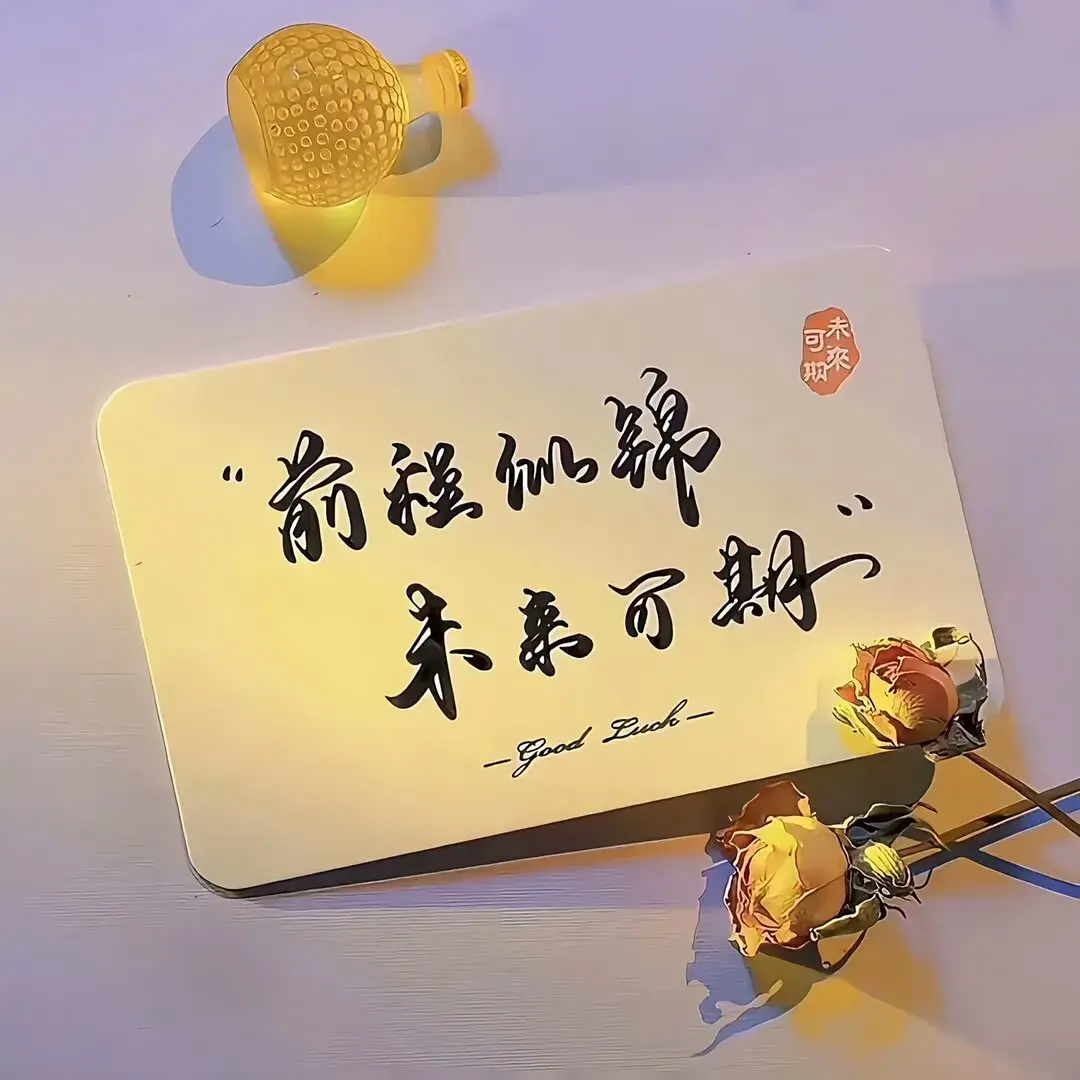 “前程似锦
未来可期”
—Good Luck—
未來
可期